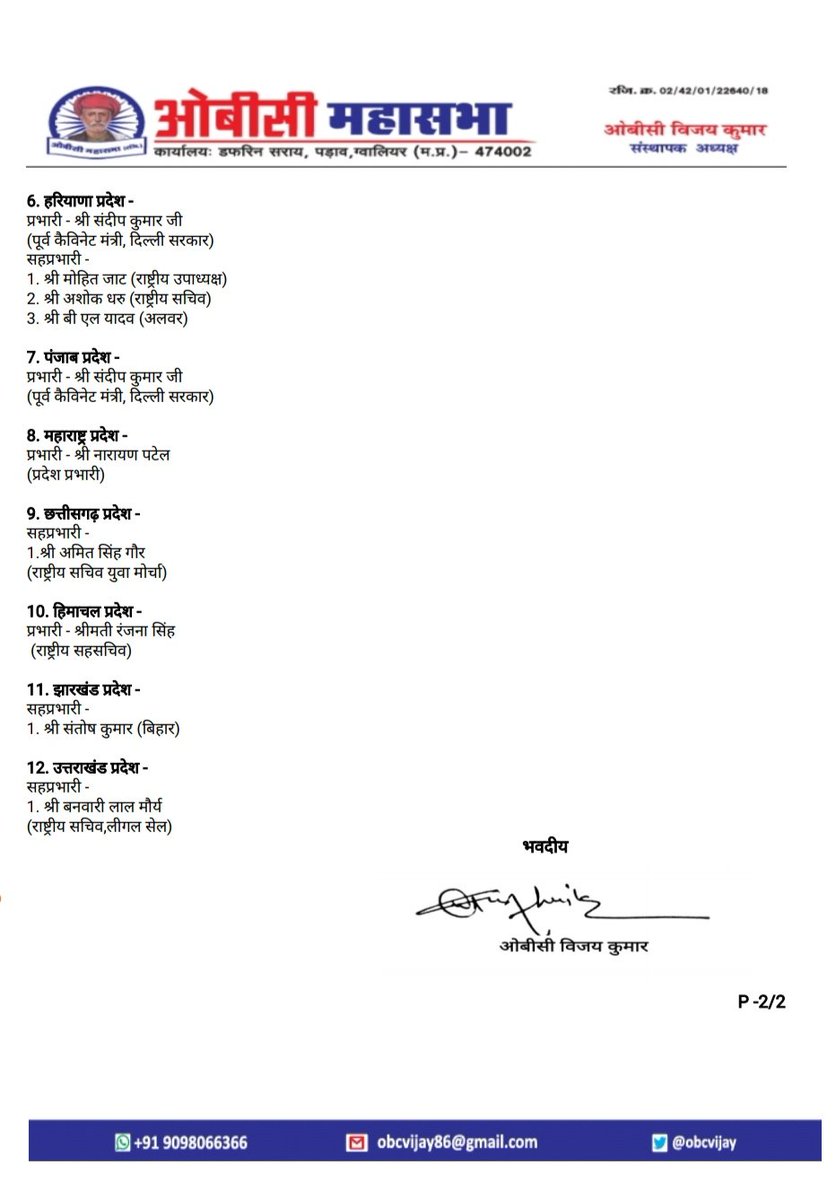 रजि. क्र. 02/42/01/22640/18
ओबीसी महासभा
ओबीसी महासभा (रजि.)
कार्यालयः डफरिन सराय, पड़ाव,ग्वालियर (म.प्र.)– 474002
ओबीसी विजय कुमार
संस्थापक अध्यक्ष
6. हरियाणा प्रदेश -
प्रभारी - श्री संदीप कुमार जी
(पूर्व कैविनेट मंत्री, दिल्ली सरकार)
सहप्रभारी -
1. श्री मोहित जाट (राष्ट्रीय उपाध्यक्ष)
2. श्री अशोक धरु (राष्ट्रीय सचिव)
3. श्री बी एल यादव (अलवर)
7. पंजाब प्रदेश -
प्रभारी - श्री संदीप कुमार जी
(पूर्व कैविनेट मंत्री, दिल्ली सरकार)
8. महाराष्ट्र प्रदेश -
प्रभारी - श्री नारायण पटेल
(प्रदेश प्रभारी)
9. छत्तीसगढ़ प्रदेश -
सहप्रभारी -
1.श्री अमित सिंह गौर
(राष्ट्रीय सचिव युवा मोर्चा)
10. हिमाचल प्रदेश -
प्रभारी - श्रीमती रंजना सिंह
(राष्ट्रीय सहसचिव)
11. झारखंड प्रदेश -
सहप्रभारी -
1. श्री संतोष कुमार (बिहार)
12. उत्तराखंड प्रदेश -
सहप्रभारी -
1. श्री बनवारी लाल मौर्य
(राष्ट्रीय सचिव,लीगल सेल)
भवदीय
ओबीसी विजय कुमार
P -2/2
+91 9098066366
obcvijay86@gmail.com
@obcvijay